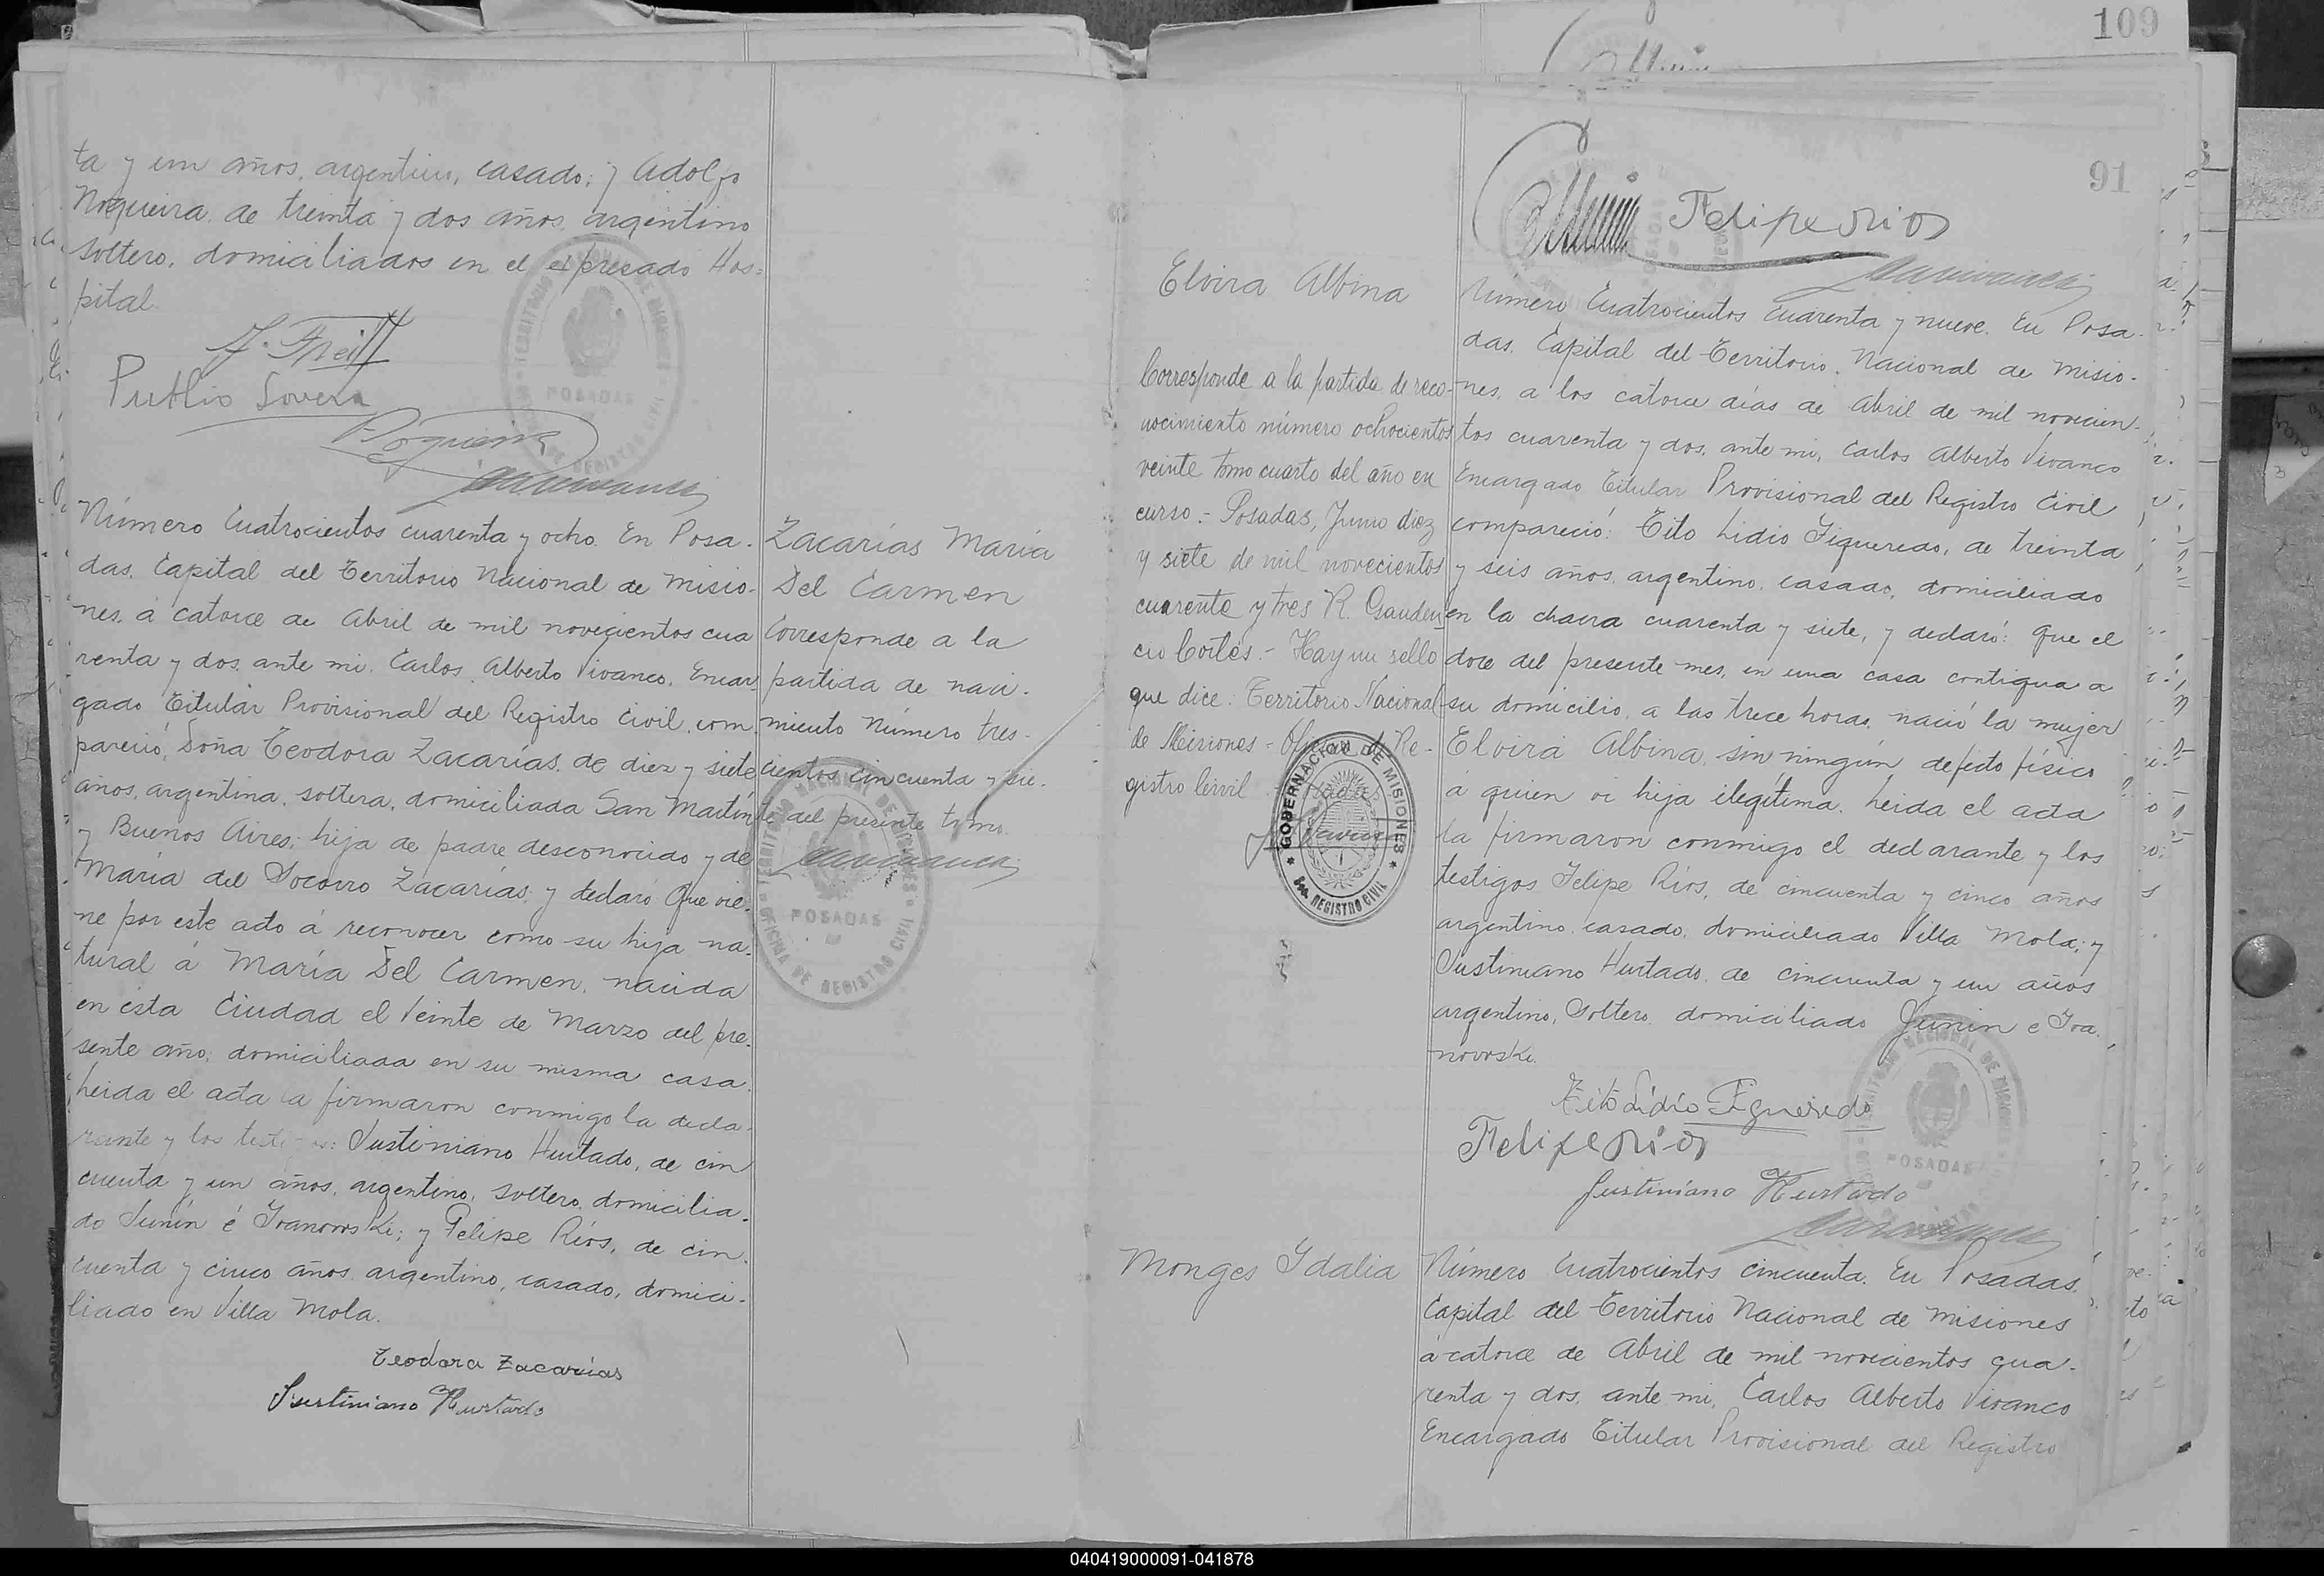 109
ta y un años, argentino, casado; y Adolfo
Nogueira, de treinta y dos años, argentino
soltero, domiciliados en el expresado Hos=
pital.
Publio Lovera
Nogueira
TERRITORIO NACIONAL DE MISIONES
POSADAS
OFICINA DE REGISTRO CIVIL
Número Cuatrocientos cuarenta y ocho. En Posa-
das, Capital del Territorio Nacional de Misio-
nes, á catorce de Abril de mil novecientos cua
renta y dos, ante mi, Carlos Alberto Vivanco, Encar-
gado Titular Provisional del Registro Civil, com-
pareció, Doña Teodora Zacarías, de diez y siete
años, argentina, soltera, domiciliada San Martín
y Buenos Aires; hija de padre desconocido y de
María del Socorro Zacarías; y declaró Que vie-
ne por este acto á reconocer como su hija na-
tural á María Del Carmen, nacida
en esta Ciudad el Veinte de Marzo del pre-
sente año; domiciliada en su misma casa.
Leida el acta la firmaron conmigo la decla-
rante y los testigos: Justiniano Hurtado, de cin
cuenta y un años, argentino, soltero, domicilia-
do Junín é Ivanowski; y Felipe Ríos, de cin-
cuenta y cinco años, argentino, casado, domici-
liado en Villa Mola.
Teodora Zacarías
Justiniano Hurtado
Zacarías María
Del Carmen
Corresponde a la
partida de naci-
miento Número tres-
cientos cincuenta y sie-
te del presente tomo.
TERRITORIO NACIONAL DE MISIONES
POSADAS
OFICINA DE REGISTRO CIVIL
91
Felipe Rios
Elvira Albina
Corresponde a la partida de reco-
nocimiento número ochocientos
veinte tomo cuarto del año en
curso.- Posadas, Junio diez
y siete de mil novecientos
cuarenta y tres R. Gauden-
cio Cortés.- Hay un sello
que dice: Territorio Nacional
de Misiones - Oficina de Re-
gistro Civil
GOBERNACION DE MISIONES
REGISTRO CIVIL
Número Cuatrocientos cuarenta y nueve. En Posa-
das, Capital del Territorio Nacional de Misio-
nes, a los catorce días de Abril de mil novecien-
tos cuarenta y dos, ante mi, Carlos Alberto Vivanco
Encargado Titular Provisional del Registro Civil
compareció: Tito Lidio Figueredo, de treinta
y seis años, argentino, casado, domiciliado
en la chacra cuarenta y siete, y declaró: Que el
doce del presente mes, en una casa contigua a
su domicilio, a las trece horas, nació la mujer
Elvira Albina, sin ningún defecto físico
á quien vi hija ilegítima. Leida el acta
la firmaron conmigo el declarante y los
testigos Felipe Ríos, de cincuenta y cinco años
argentino, casado, domiciliado Villa Mola; y
Justiniano Hurtado, de cincuenta y un años
argentino, soltero, domiciliado Junin e Iva-
nowski.
Tito Lidio Figueredo
Felipe Rios
Justiniano Hurtado
TERRITORIO NACIONAL DE MISIONES
POSADAS
Monges Idalia
Número Cuatrocientos cincuenta. En Posadas,
Capital del Territorio Nacional de Misiones
á catorce de Abril de mil novecientos cua-
renta y dos, ante mi, Carlos Alberto Vivanco
Encargado Titular Provisional del Registro
040419000091-041878